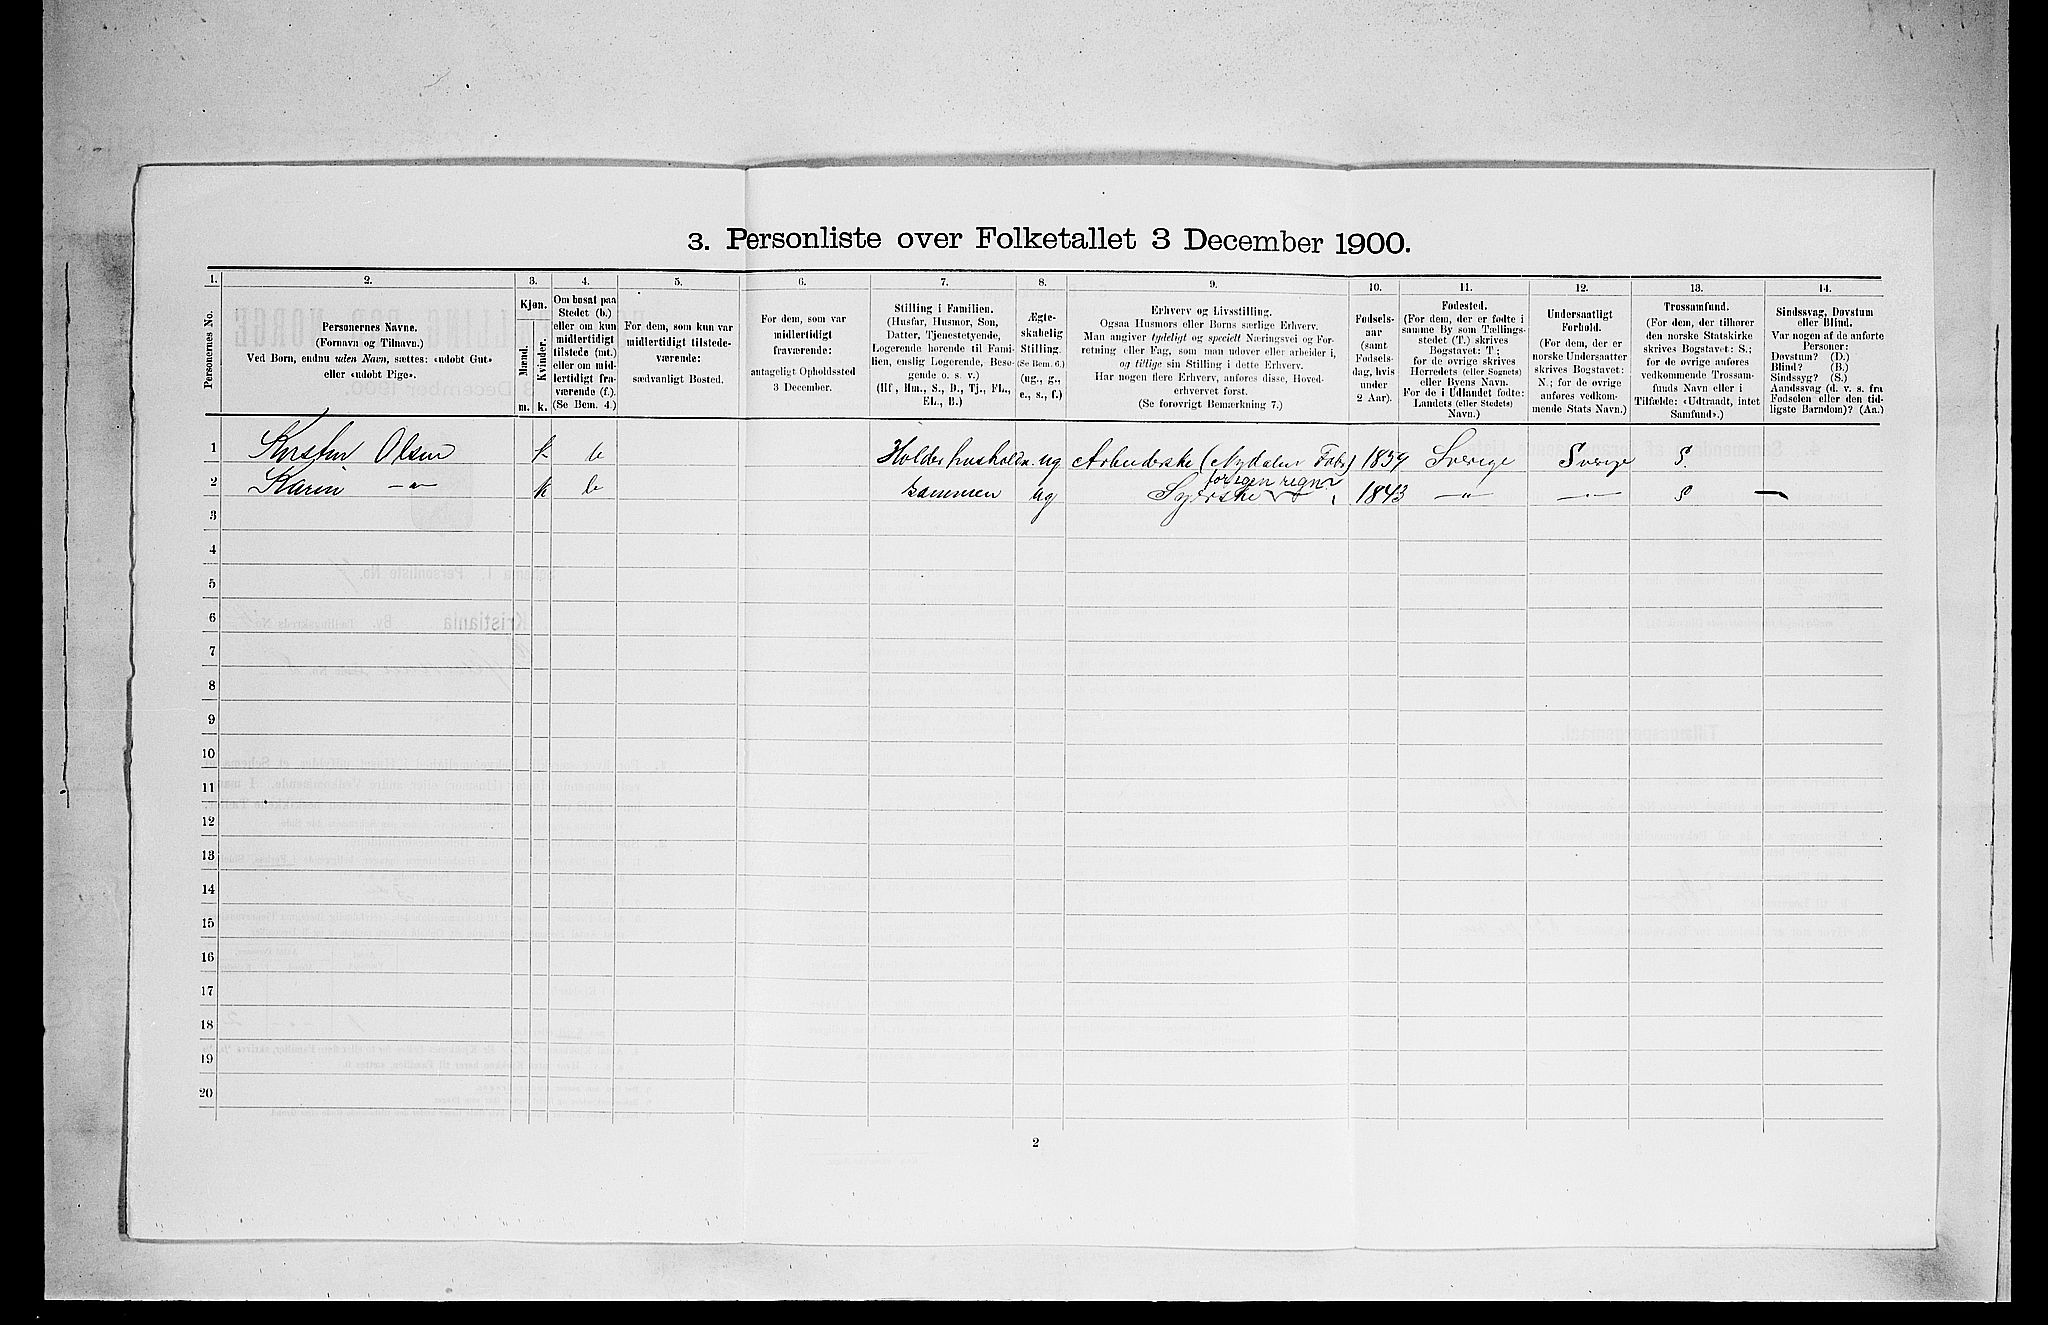 3. Personliste over Folketallet 3 December 1900.
1. 2. 3. 4. 5. 6. 7. 8. 9. 10. 11. 12. 13. 14.
Personernes No.
Personernes Navne.
(Fornavn og Tilnavn.)
Ved Børn, endnu uden Navn, sættes: «udøbt Gut»
eller «udøbt Pige».
Kjøn.
Mænd. Kvinder.
m. k.
Om bosat paa
Stedet (b.)
eller om kun
midlertidigt
tilstede (mt.)
eller om mid-
lertidigt fra-
værende (f.).
(Se Bem. 4.)
For dem, som kun var
midlertidigt tilstede-
værende:
sædvanligt Bosted.
For dem, som var
midlertidigt
fraværende:
antageligt Opholdssted
3 December.
Stilling i Familien.
(Husfar, Husmor, Søn,
Datter, Tjenestetyende,
Logerende hørende til Fami-
lien, enslig Logerende, Besø-
gende o. s. v.)
(Hf, Hm., S., D., Tj., FL.,
EL., B.)
Ægte-
skabelig
Stilling.
(Se Bem. 6.)
(ug., g.,
e., s., f.)
Erhverv og Livsstilling.
Ogsaa Husmors eller Børns særlige Erhverv.
Man angiver tydeligt og specielt Næringsvei og For-
retning eller Fag, som man udøver eller arbeider i,
og tillige sin Stilling i dette Erhverv.
Har nogen flere Erhverv, anføres disse, Hoved-
erhvervet først.
(Se forøvrigt Bemærkning 7.)
Fødsels-
aar
(samt
Fødsels-
dag, hvis
under
2 Aar).
Fødested.
(For dem, der er fødte i
samme By som Tællings-
stedet (T.) skrives
Bogstavet: T;
for de øvrige skrives
Herredets (eller Sognets)
eller Byens Navn.
For de i Udlandet fødte:
Landets (eller Stedets)
Navn.)
Undersaatligt
Forhold.
(For dem, der er
norske Undersaatter
skrives Bogstavet:
N.; for de øvrige
anføres vedkom-
mende Stats Navn.)
Trossamfund.
(For dem, der tilhører
den norske Statskirke
skrives Bogstavet: S.;
for de øvrige anføres
vedkommende Trossam-
funds Navn eller i
Tilfælde: «Udtraadt, intet
Samfund».)
Sindssvag, Døvstum
eller Blind.
Var nogen af de anførte
Personer:
Døvstum? (D.)
Blind? (B.)
Sindssyg? (S.)
Aandssvag (d. v. s. fra
Fødselen eller den tid-
ligste Barndom)? (Aa.)
1 Kirsten Olsen k b Holder hushold. ug Arbeiderske (Nydalen Fabr) 1839 Sverige Sverige S.
2 Karin —"— k b sammen ug Syerske for egen regn. 1843 —"— —"— S —
3
4
5
6
7
8
9
10
11
12
13
14
15
16
17
18
19
20
2